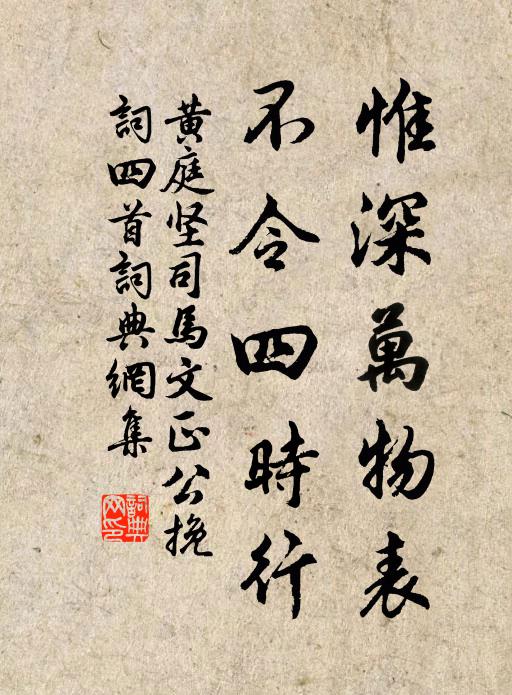 惟深萬物表
不令四時行
黄庭坚司馬文正公挽
詞四首詞典網集
詞典
网印